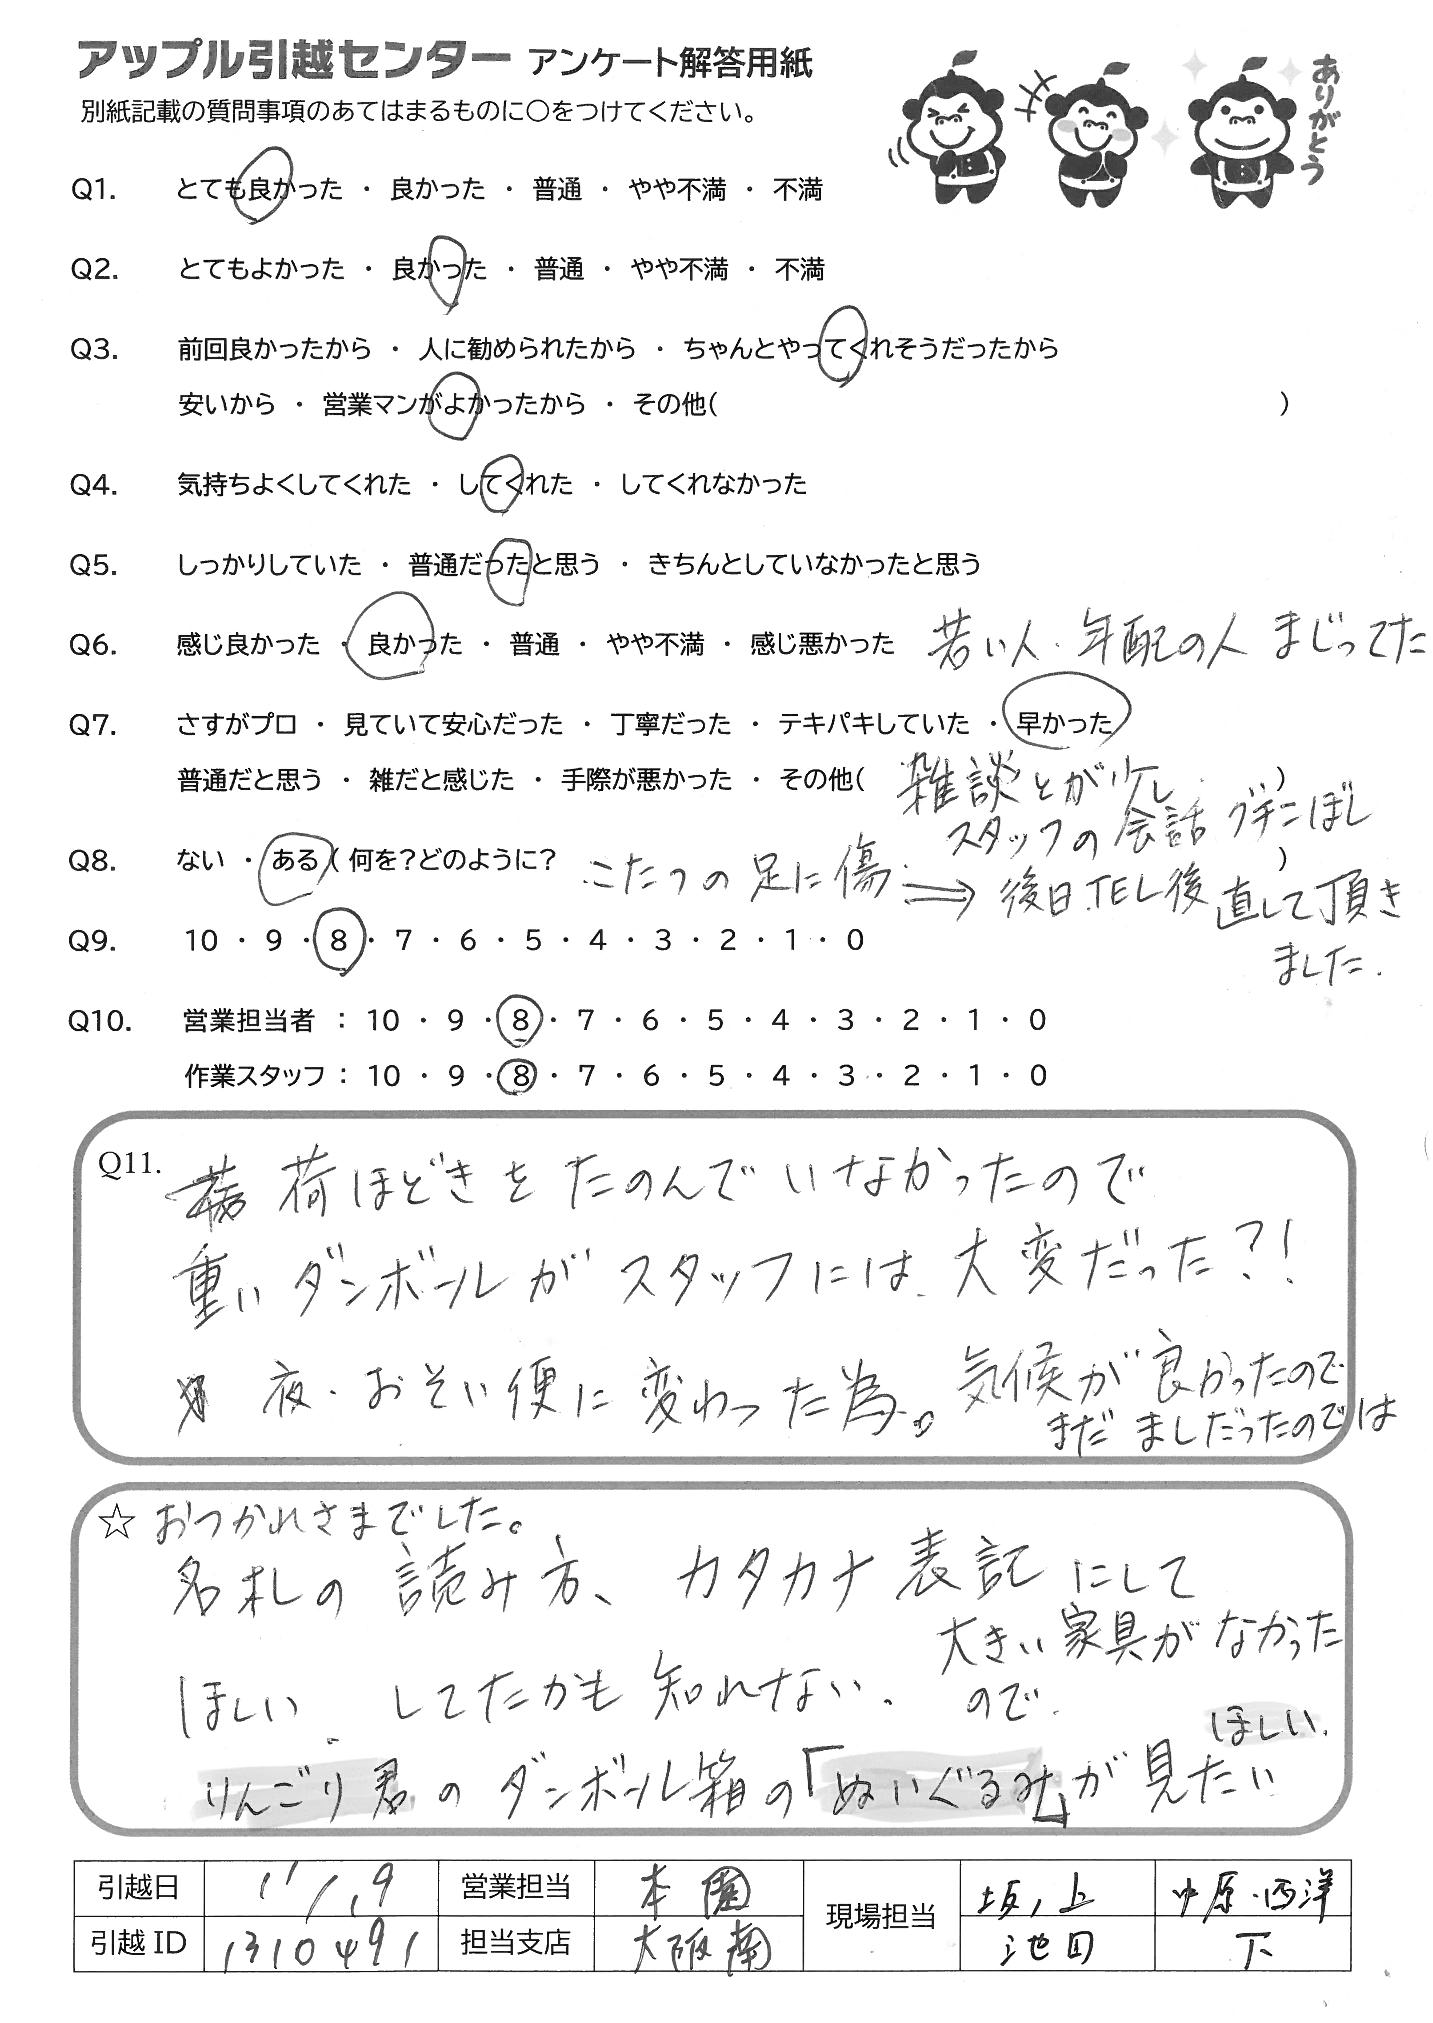 アップル引越センター アンケート解答用紙
ありがとう
別紙記載の質問事項のあてはまるものに○をつけてください。
Q1. とても良かった ・ 良かった ・ 普通 ・ やや不満 ・ 不満
Q2. とてもよかった ・ 良かった ・ 普通 ・ やや不満 ・ 不満
Q3. 前回良かったから ・ 人に勧められたから ・ ちゃんとやってくれそうだったから
安いから ・ 営業マンがよかったから ・ その他( )
Q4. 気持ちよくしてくれた ・ してくれた ・ してくれなかった
Q5. しっかりしていた ・ 普通だったと思う ・ きちんとしていなかったと思う
Q6. 感じ良かった ・ 良かった ・ 普通 ・ やや不満 ・ 感じ悪かった 若い人・年配の人 まじってた
Q7. さすがプロ ・ 見ていて安心だった ・ 丁寧だった ・ テキパキしていた ・ 早かった
普通だと思う ・ 雑だと感じた ・ 手際が悪かった ・ その他( 雑談とが少し )
スタッフの会話 グチこぼし
Q8. ない ・ ある ( 何を?どのように? こたつの足に傷. ⇒ 後日.TEL後 直して頂き )
ました.
Q9. 10 ・ 9 ・ 8 ・ 7 ・ 6 ・ 5 ・ 4 ・ 3 ・ 2 ・ 1 ・ 0
Q10. 営業担当者 : 10 ・ 9 ・ 8 ・ 7 ・ 6 ・ 5 ・ 4 ・ 3 ・ 2 ・ 1 ・ 0
作業スタッフ : 10 ・ 9 ・ 8 ・ 7 ・ 6 ・ 5 ・ 4 ・ 3 ・ 2 ・ 1 ・ 0
Q11. 荷ほどきをたのんでいなかったので
重いダンボールがスタッフには、大変だった?!
夜・おそい便に変わった為。気候が良かったので
まだ ましだったのでは
☆ おつかれさまでした。
名札の読み方、カタカナ表記にして
大きい家具がなかった
ほしい. してたかも知れない. ので.
ほしい.
りんごり君のダンボール箱の「ぬいぐるみ」が見たい
引越日 11/19 営業担当 本園 現場担当 坂ノ上 中原・西洋
引越ID 1310491 担当支店 大阪南 池田 下